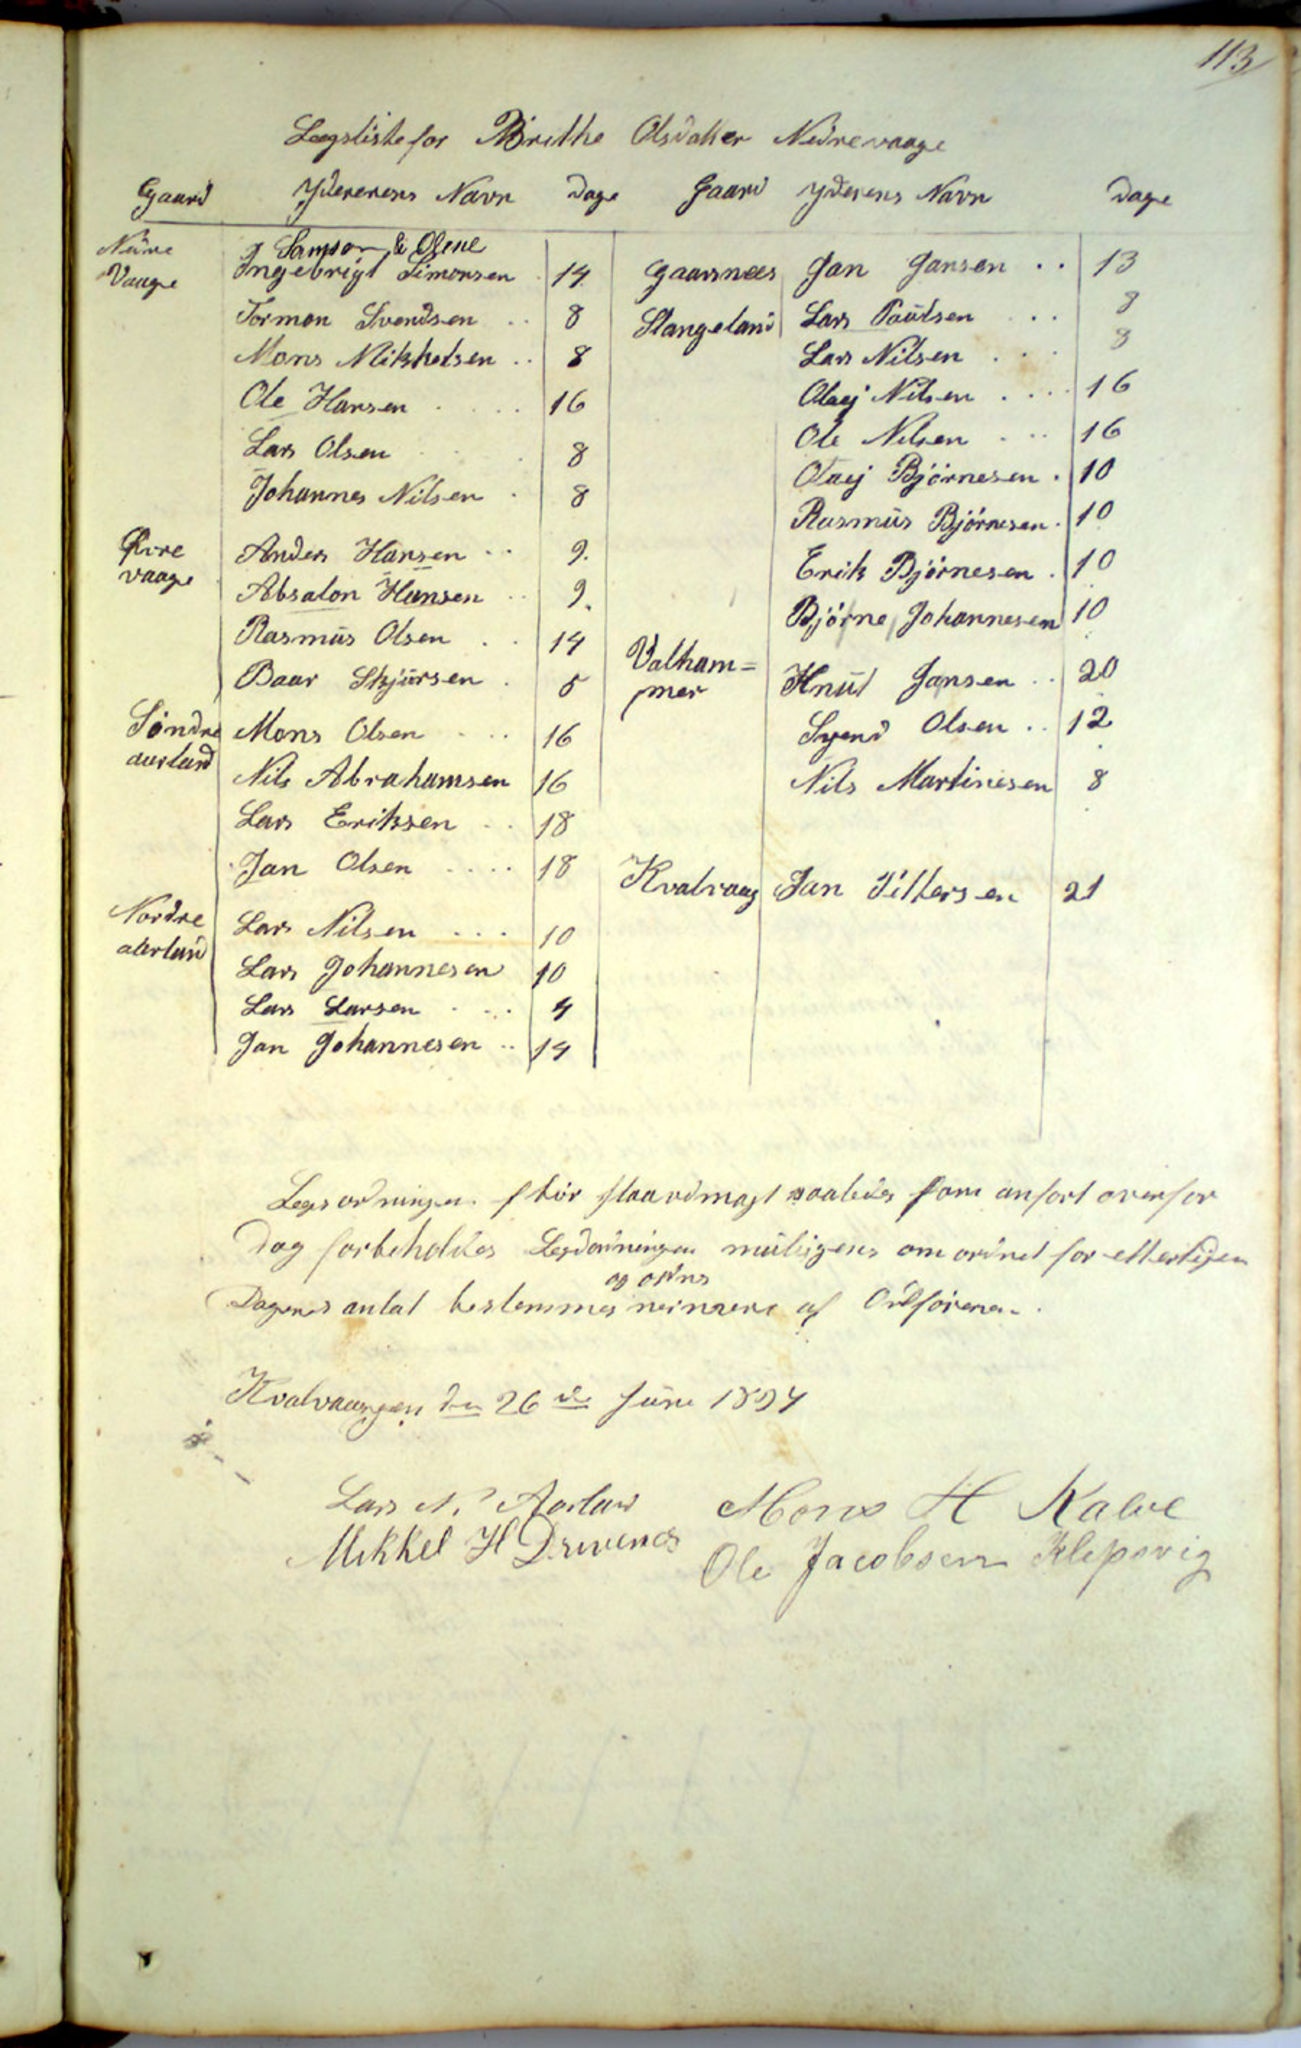 113
Lægsliste for Brithe Olsdatter Nedrevaage
Gaard Yderens Navn Dage Gaard Yderens Navn Dage
Nedre Vaage Samson & Olene
Ingebrigt Simonsen . 14
Tormon Svendsen .. 8
Mons Mikkelsen .. 8
Ole Hansen .... 16
Lars Olsen ... 8
Johannes Nilsen . 8
Øvre vaage Anders Hansen .. 9.
Absalon Hansen .. 9.
Rasmus Olsen .. 14
Baar Skjursen . 5
Søndre aurland Mons Olsen ... 16
Nils Abrahamsen 16
Lars Eriksen .. 18
Jan Olsen .... 18
Nordre aurland Lars Nilsen ... 10
Lars Johannesen 10
Lars Larsen ... 4
Jan Johannesen .. 14
Gaasnees Jan Jansen .. 13
Stangeland Lars Paulsen ... 8
Lars Nilsen ... 8
Olaej Nilsen .... 16
Ole Nilsen ... 16
Olaej Bjørnesen . 10
Rasmus Bjørnesen . 10
Erik Bjørnesen . 10
Bjørne Johannesen 10
Valham=
mer Knut Jansen .. 20
Svend Olsen .. 12
Nils Martinesen 8
Kvalvaag Jan Pittersen 21
Legsordningen bør saaledes som anført ovenfor
Dog forbeholdes Legdordningen muligens omordnet for eftertiden
og ordns
Dagenes antal bestemmes nermere af Ordføreren.
Kvalvaagen den 26de Juni 1894
Lars N. Aarland Mons H Kalve
Mikkel H Drivenes Ole Jacobsen Klepsvig